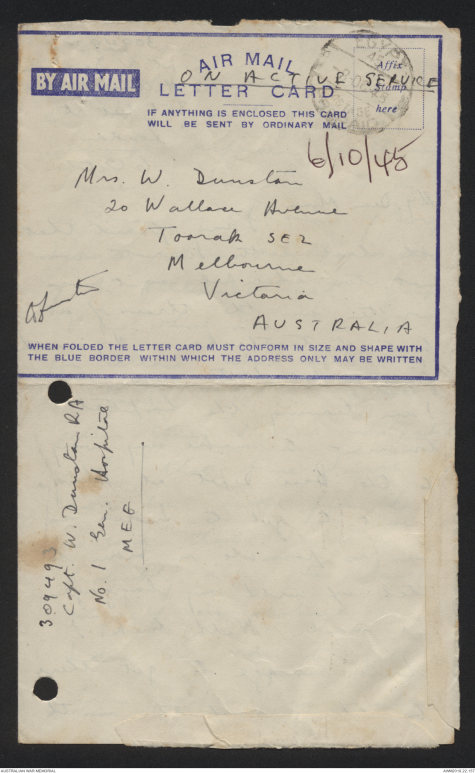 BY AIR MAIL
AIR MAIL
LETTER CARD
ON ACTIVE SERVICE
IF ANYTHING IS ENCLOSED THIS CARD
WILL BE SENT BY ORDINARY MAIL
Affix
Stamp
here
EGYPT
6/10/45
Mrs. W. Dunstan
20 Wallace Avenue
Toorak SE2
Melbourne
Victoria
AUSTRALIA
WHEN FOLDED THE LETTER CARD MUST CONFORM IN SIZE AND SHAPE WITH
THE BLUE BORDER WITHIN WHICH THE ADDRESS ONLY MAY BE WRITTEN
Capt. W. Dunstan RA
No. 1 Gen. Hospital
MEF
AUSTRALIAN WAR MEMORIAL